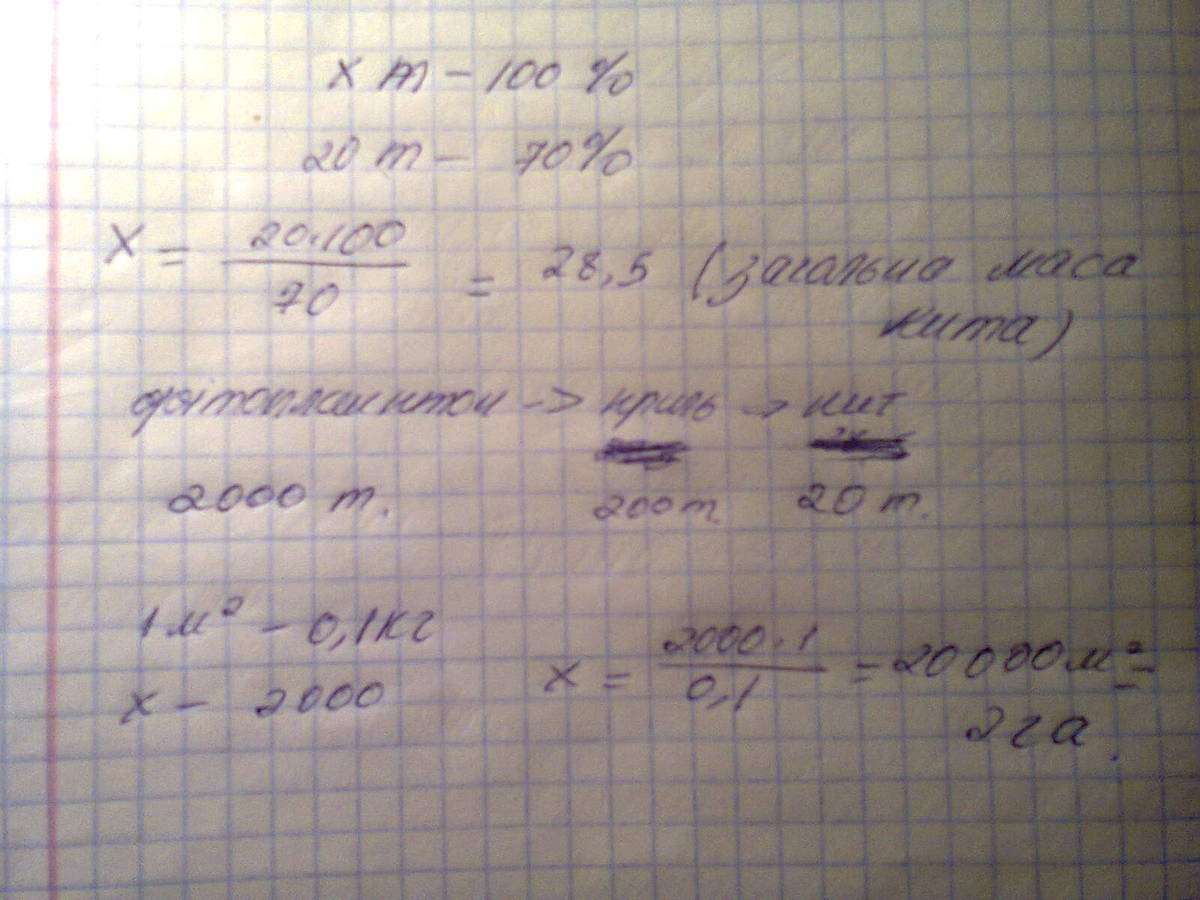 x т - 100 %
20 т - 70%
X = 20·100 / 70 = 28,5 (загальна маса
кита)
фітопланктон -> криль -> кит
2000 т. 200 т. 20 т.
1 м² - 0,1 кг
x - 2000
x = 2000·1 / 0,1 = 20000 м² =
2 га.